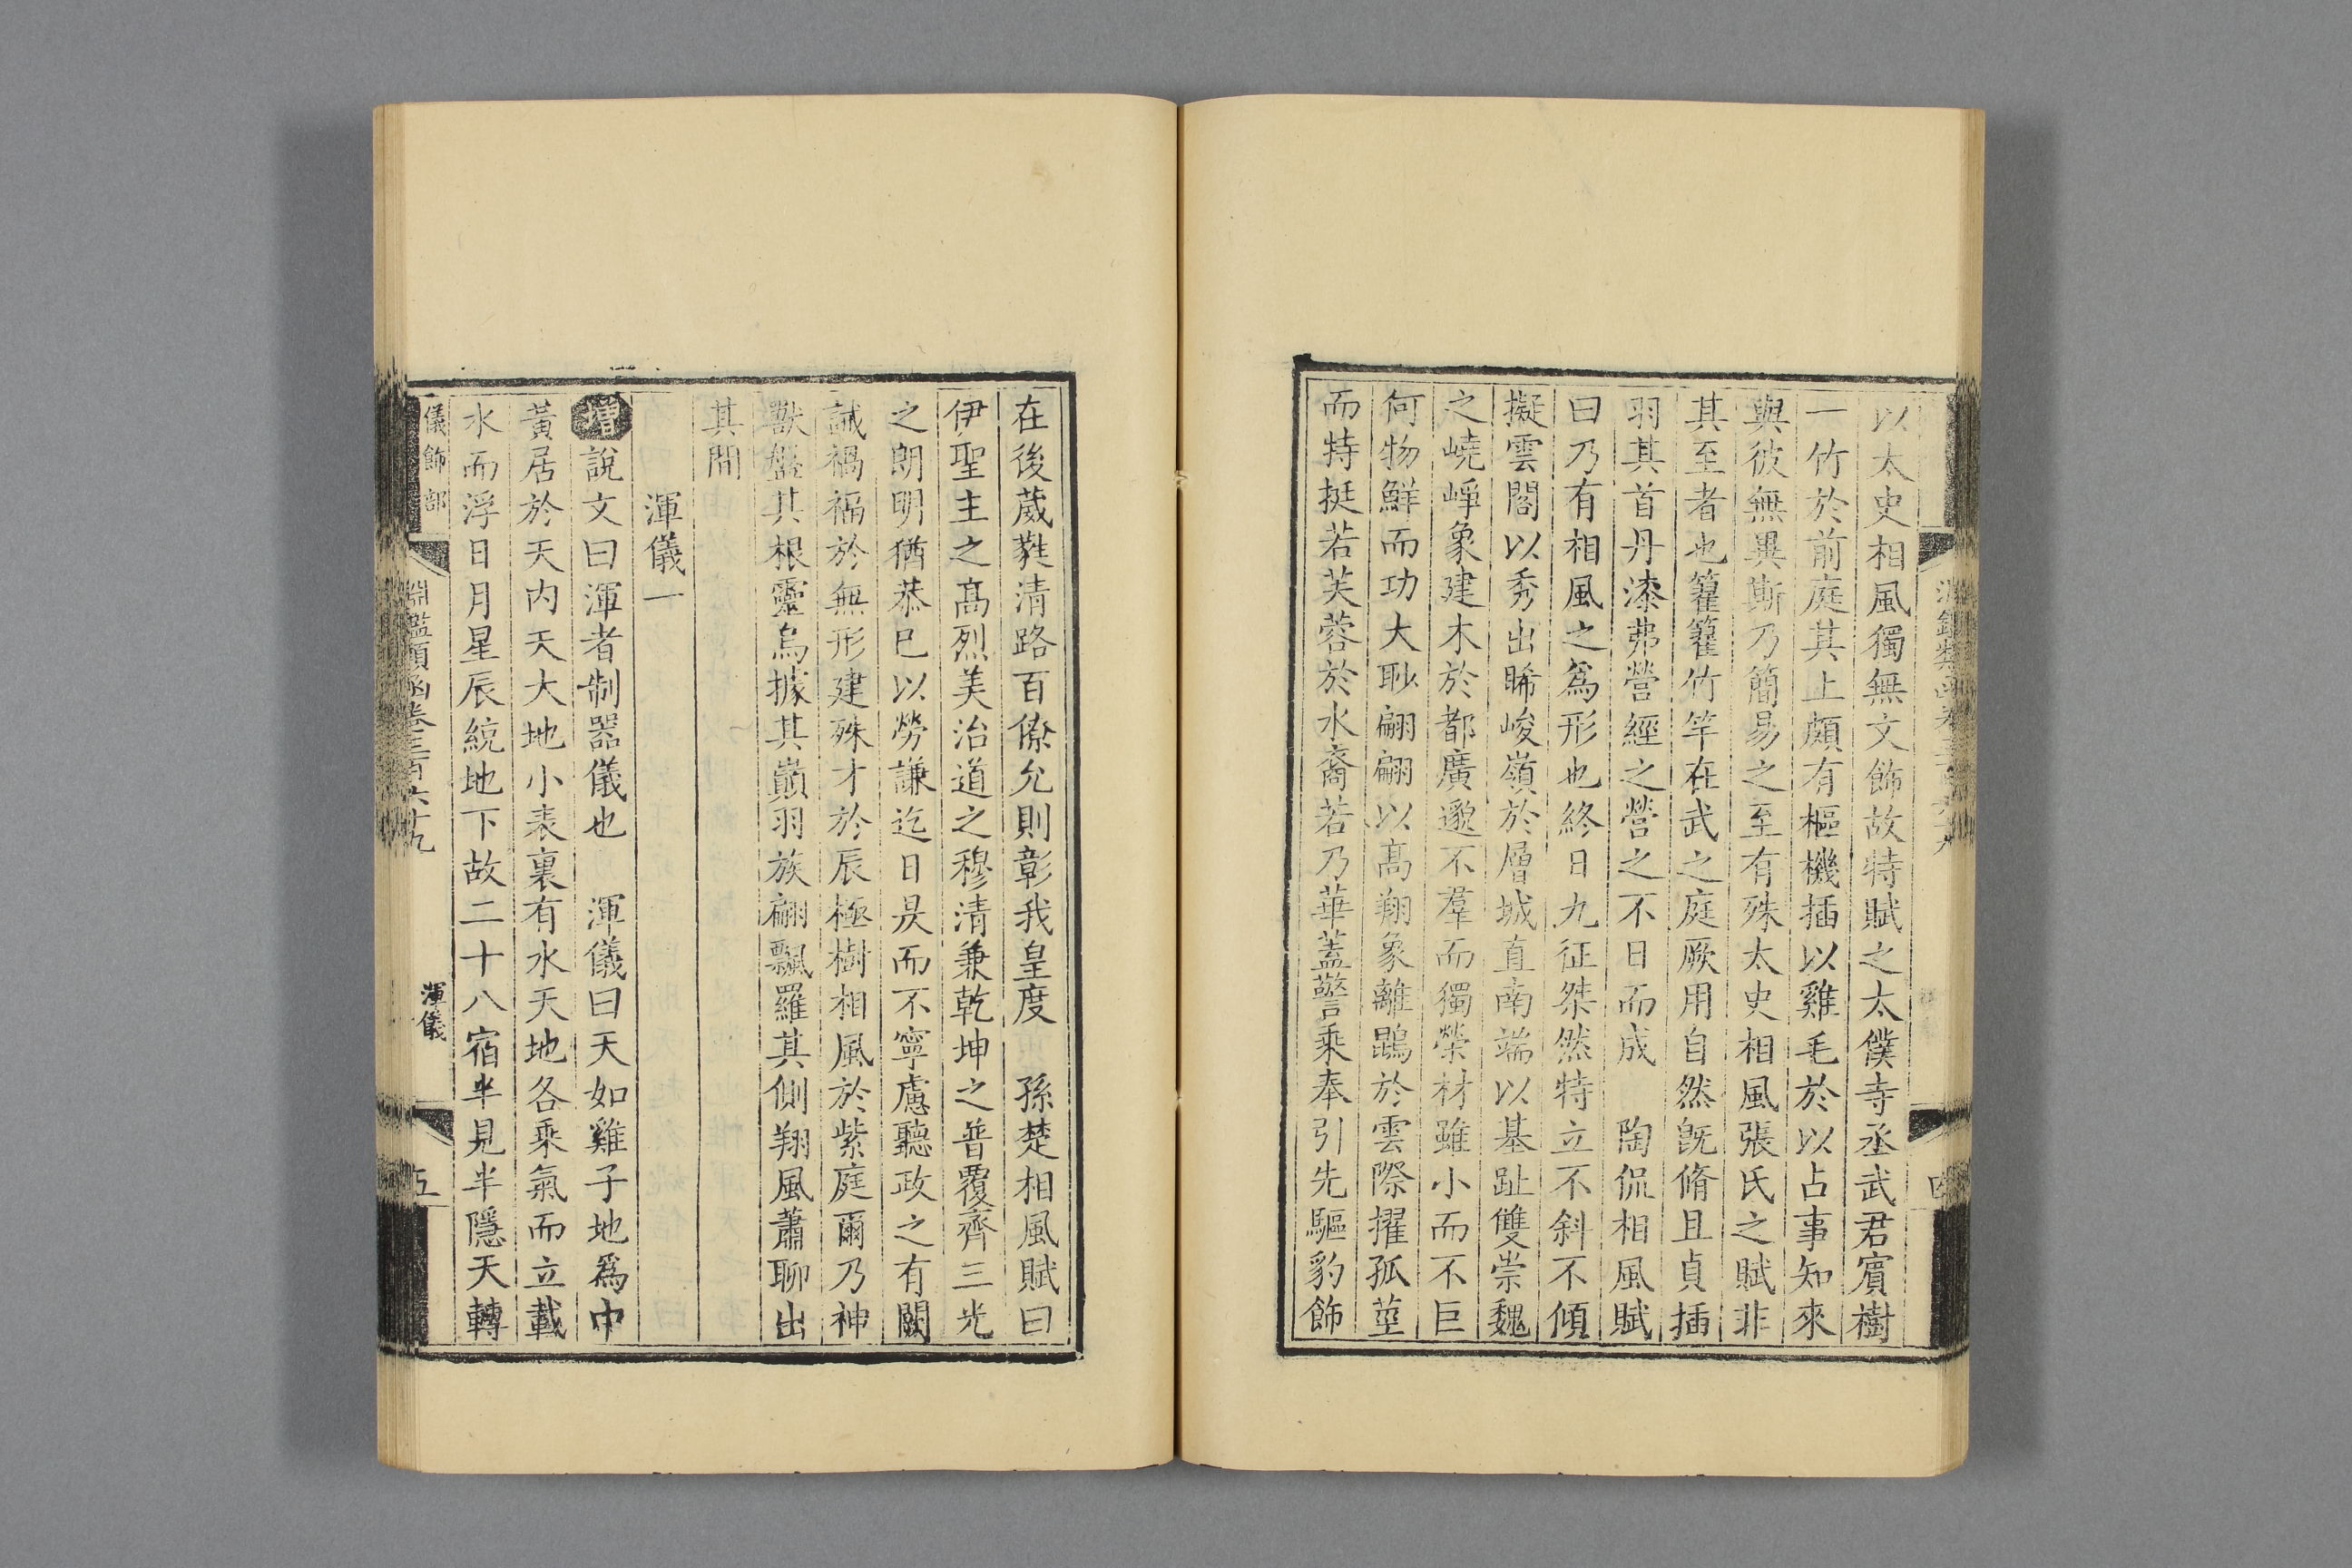 以太史相風獨無文飾故特賦之太僕寺丞武君賓樹
一竹於前庭其上頗有樞機插以雞毛於以占事知來
與彼無異斯乃簡易之至有殊太史相風張氏之賦非
其至者也籊籊竹竿在武之庭厥用自然旣脩且貞插
羽其首丹漆弗營經之營之不日而成　陶侃相風賦
曰乃有相風之爲形也終日九征桀然特立不斜不傾
擬雲閣以秀出睎峻嶺於層城直南端以基趾雙崇魏
之嶢崢象建木於都廣邈不羣而獨榮材雖小而不巨
何物鮮而功大眇翩翩以高翔象離鵾於雲際擢孤莖
而特挺若芙蓉於水裔若乃華蓋警乘奉引先驅豹飾
在後葳蕤清路百僚允則彰我皇度　孫楚相風賦曰
伊聖主之高烈美治道之穆清兼乾坤之普覆齊三光
之朗明猶恭巳以勞謙迄日昃而不寧慮聽政之有闕
誡禍福於無形建殊才於辰極樹相風於紫庭爾乃神
獸盤其根靈烏據其巔羽族翩飄羅其側翔風蕭聊出
其間
渾儀一
增說文曰渾者制器儀也　渾儀曰天如雞子地爲中
黃居於天內天大地小表裏有水天地各乘氣而立載
水而浮日月星辰繞地下故二十八宿半見半隱天轉
儀飾部
淵鑑類函卷三百六十九
渾儀
五